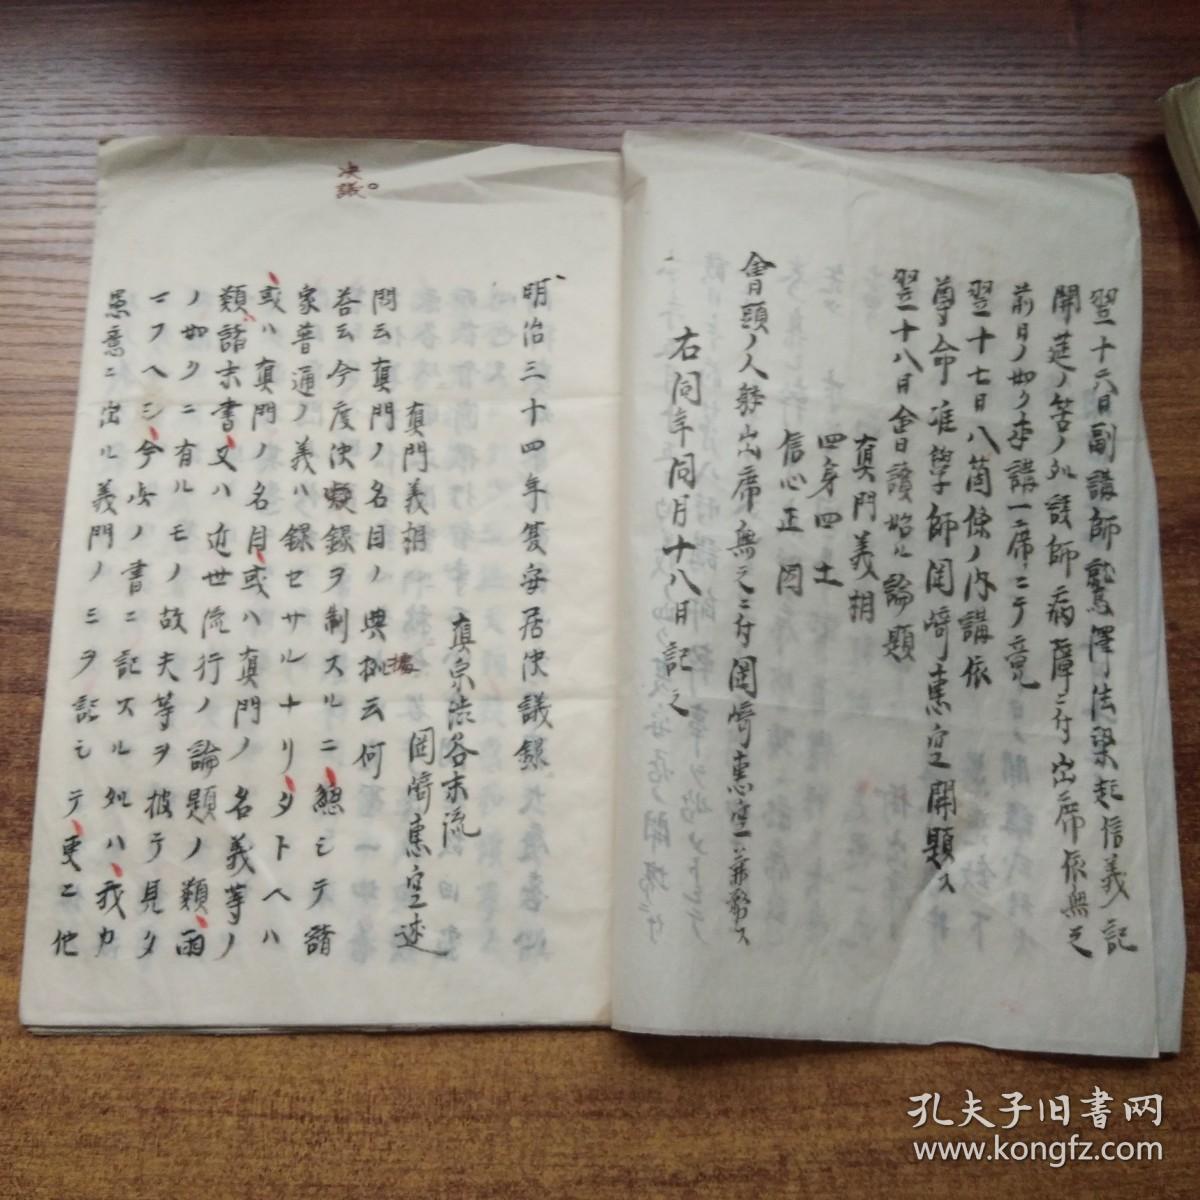 翌十六日副講師鷲澤法梁起信義記
開莚ノ筈ノ処講師病障ニ付出席依無之
前日ノ如ク本講一席ニテ竟ル
翌十七日八箇條ノ内講依
尊命准學師岡崎惠空開題ス
翌十八日會讀始ル論題
真門義相
四身四土
信心正因
會頭ノ人躰出席無之ニ付岡崎惠空兼幣ス
右同年同月十八日記之
决議。
明治三十四年夏安居决議錄
真宗渋谷末流
真門義相　岡崎惠空述
問云真門ノ名目ノ典據云何
答云今度决議錄ヲ制スルニ總シテ諸
家普通ノ義ハ錄セサルナリタトヘハ
或ハ真門ノ名目或ハ真門ノ名義等ノ
類諸末書又ハ近世流行ノ論題ノ類両
ノ如クニ有ルモノ故夫等ヲ披テ見タ
マフヘシ今此ノ書ニ記スル処ハ我カ
愚意ニ出ル義門ノミヲ記シテ更ニ他
孔夫子旧书网
www.kongfz.com